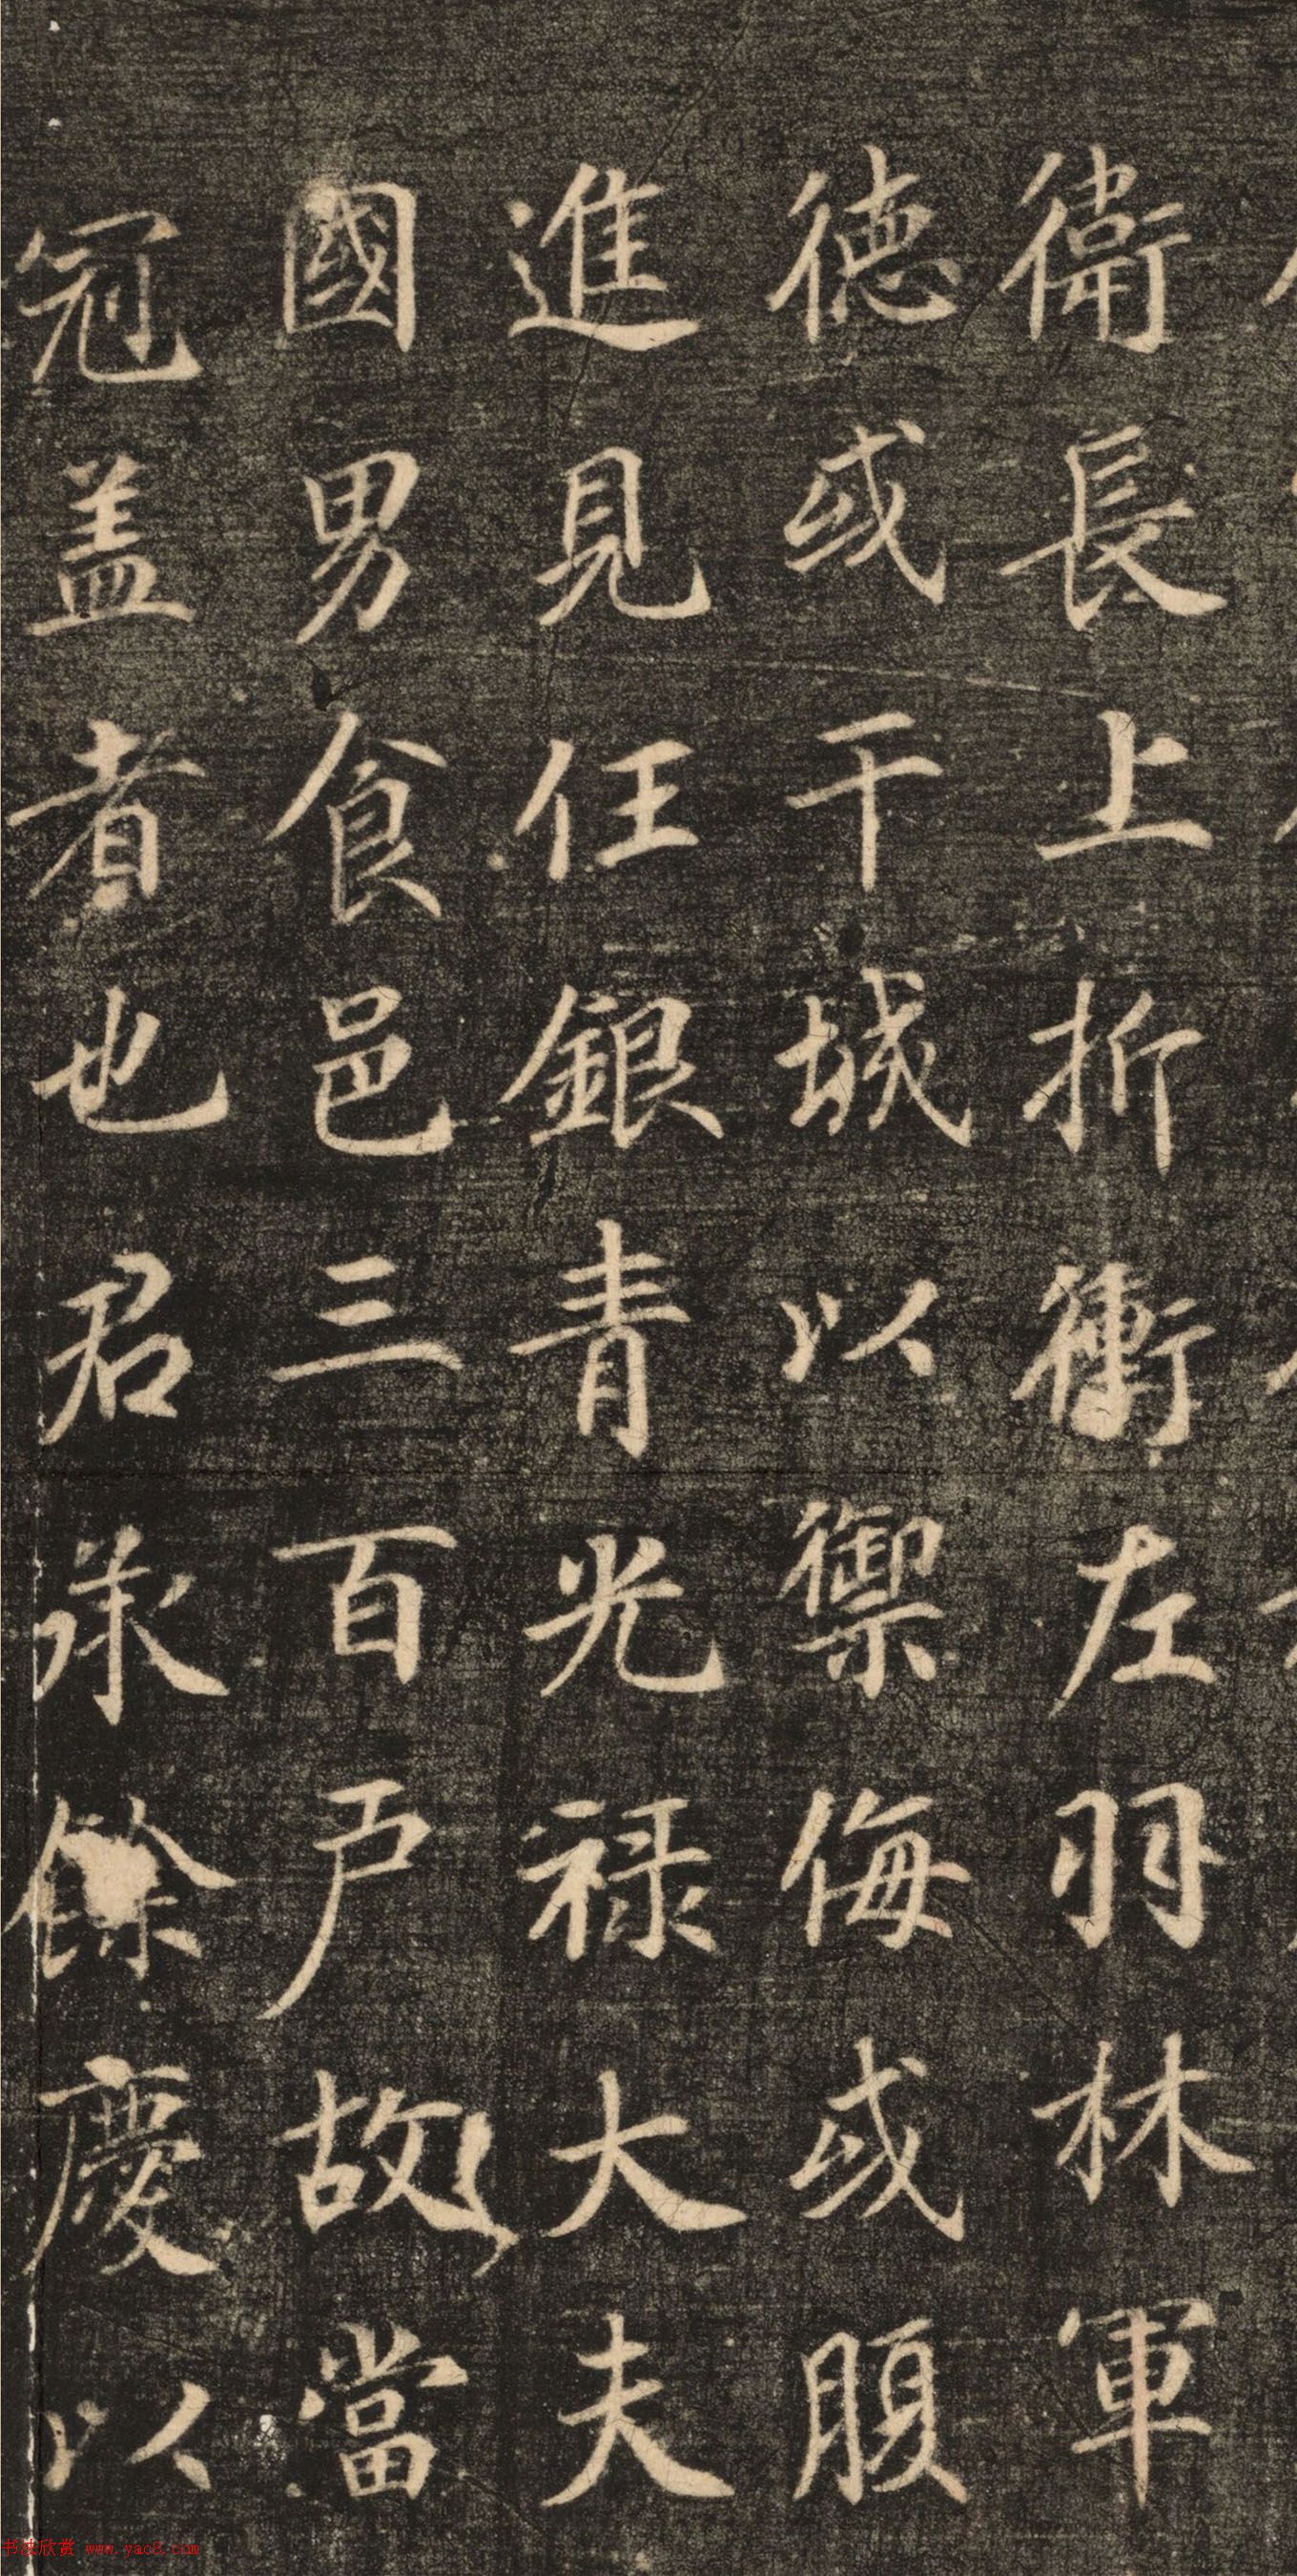 衞長上折衝左羽林軍
德或干城以禦侮或腹
進見任銀青光禄大夫
國男食邑三百户故當
冠盖者也君承餘慶以
书法欣赏 www.yac8.com